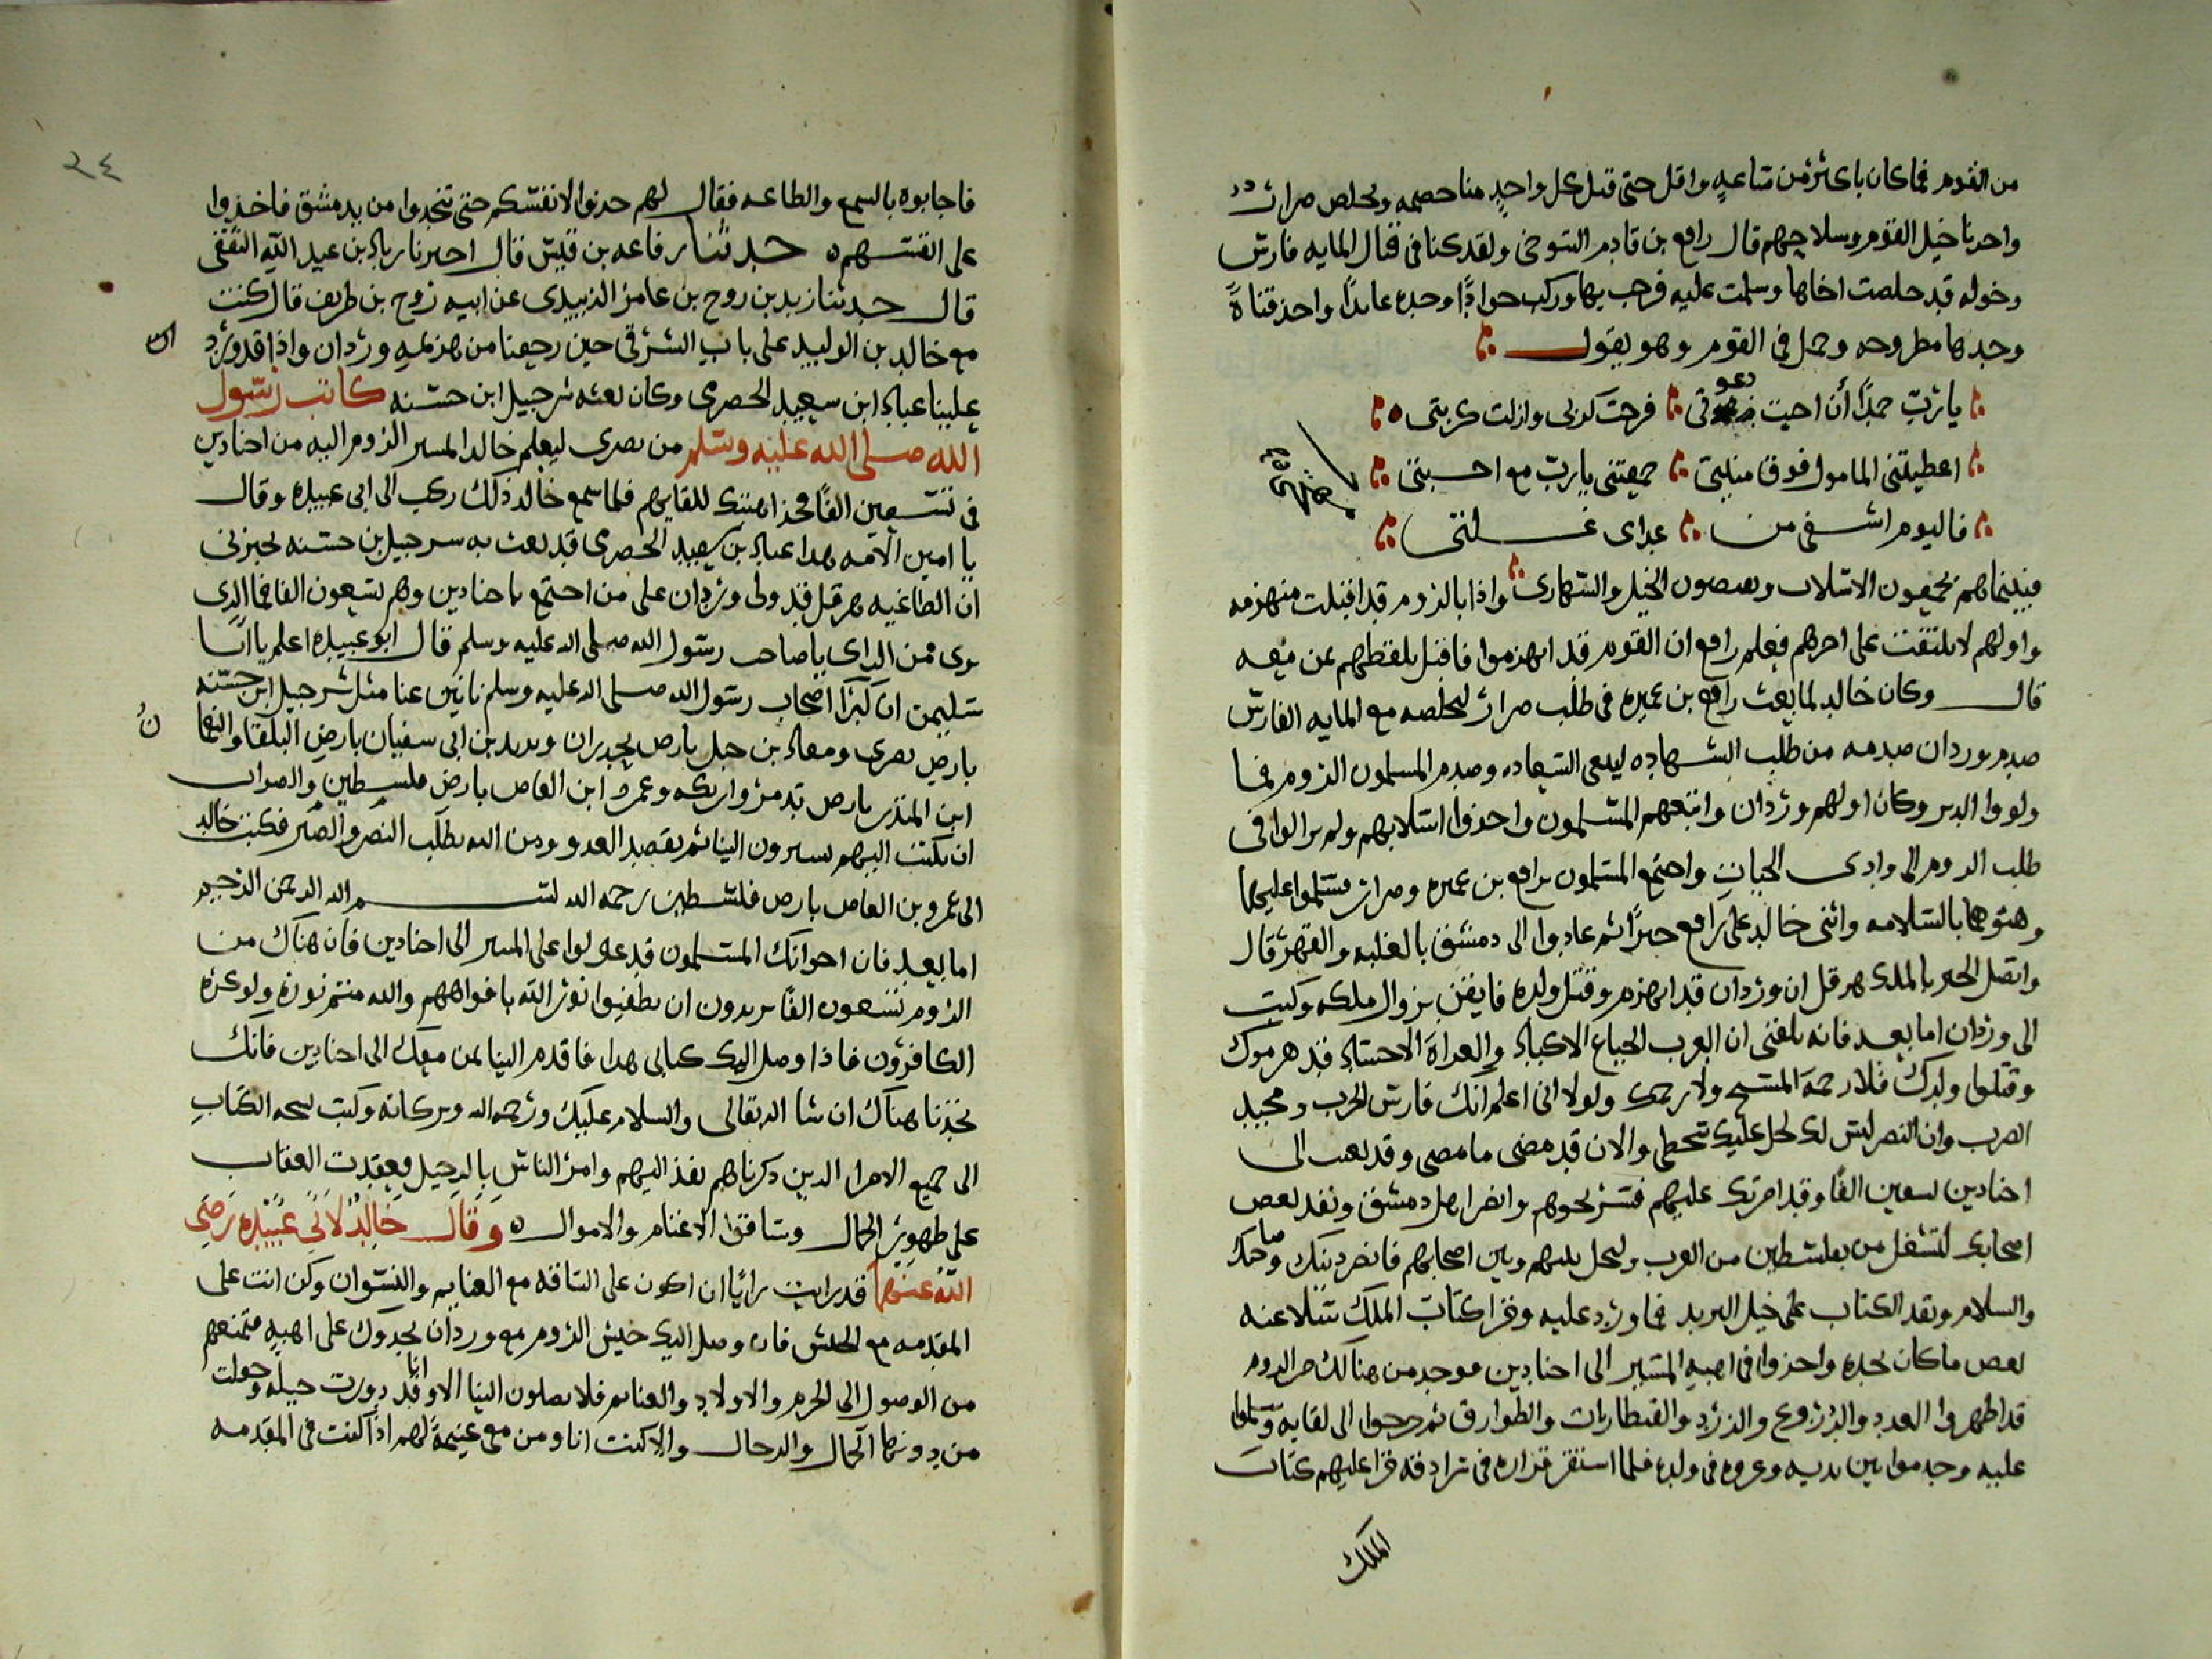 من القوم فما كان باكثر من ساعه واقل حتى قتل كل واحد منا خصمه وتخلص ضرار
واخدنا خيل القوم وسلاحهم قال رافع بن قادم التنوخى ولقد كنا فى قتال المايه فارس
وخوله قد خلصت اخاها وسلمت عليه فرحب بها وركب جوادًا وحده عايدًا واخذ قناةً
وجدها مطروحه وحمل فى القوم وهو يقول
يا رب حمدًا أن اجبت دعوتى فرجت كربى وازلت كربتى
اعطيتنى المامول فوق منيتى جمعتنى يا رب مع احبتى
فاليوم اشفى من عداى غلتى
فبينماهم يجمعون الاسلاب ويقبضون الخيل والشهارى واذا بالروم قد اقبلت منهزمه
واولهم لا يلتفت على اخرهم فعلم رافع ان القوم قد انهزموا فاقبل يلقطهم بمن معه
قال وكان خالد لما بعث رافع بن عميره فى طلب ضرار ليخلصه مع المايه الفارس
صدم وردان صدمه من طلب الشهاده ليدعى السعاده وصدم المسلمون الروم فما
ولووا الدبر وكان اولهم وردان واتبعهم المسلمون واخذوا اسلابهم ولم يزالوا فى
طلب الروم الى وادى الحيات واجتمع المسلمون برافع بن عميره وضرار وسلموا عليهما
وهنوهما بالسلامه واثنى خالد على رافع خيرًا ثم عادوا الى دمشق بالغلبه والقهر قال
واتصل الخبر بالملك هرقل ان وردان قد انهزم وقتل ولده فايقن بزوال ملكه وكتب
الى وردان اما بعد فانه بلغنى ان العرب الجياع الاكباد والعراة الاجساد قد هزموك
وقتلوا ولدك فلا رحمه المسيح ولا رحمك ولولا انى اعلم انك فارس الحرب ومجيد
الضرب وان النصر ليس لك لحل عليك سخطى والان قد مضى ما مضى وقد بعثت الى
اجنادين تسعين الفًا وقد امرتك عليهم فسر نحوهم وانصر اهل دمشق ونفد بعض
اصحابك لتشغل من بفلسطين من العرب وتحل بينهم وبين اصحابهم فانصر دينك وصاحبك
والسلام ونفد الكتاب على خيل البريد فما ورد عليه وقرا كتاب الملك تسلا عنه
بعض ما كان يجده واخذوا فى اهبه المسير الى اجنادين فوجد من هنالك من الروم
قد اظهروا العدد والدروع والزرد والقنطاريات والطوارق ثم خرجوا الى لقايه وسلموا
عليه وخدموا بين يديه وعزوه فى ولده فلما استقر قراره فى سرادقه قرا عليهم كتاب
الملك
٢٤
فاجابوه بالسمع والطاعه فقال لهم خدوا لانفسكم حتى تنجدوا من بدمشق فاخذوا
على انفسهم حدثنا رفاعه بن قيس قال اخبرنا زياد بن عبد الله الثقفى
قال حدثنا زيد بن روح بن عامر الزبيدى عن ابيه روح بن طريف قال كنت
مع خالد بن الوليد على باب الشرقى حين رجعنا من هزيمه وردان واذا قد ورد
علينا عباد ابن سعيد الحضرمى وكان بعثه شرحبيل ابن حسنه كاتب رسول
الله صلى الله عليه وسلم من بصرى ليعلم خالد المسير الروم اليه من اجنادين
فى تسعين الفًا فخذ اهبتك للقايهم فلما سمع خالد ذلك ركب الى ابى عبيده وقال
يا امين الامه هدا عباد بن سعيد الحضرمى قد بعث به شرحبيل بن حسنه يخبرنى
ان الطاغيه هرقل قد ولى وردان على من اجتمع باجنادين وهم تسعون الفا فما الدى
ترى من الراى يا صاحب رسول الله صلى الله عليه وسلم قال ابو عبيده اعلم يا ابا
سليمن ان كبرا اصحاب رسول الله صلى الله عليه وسلم نايين عنا مثل شرحبيل ابن حسنه
بارض بصرى ومعاد بن جبل بارض حوران ويزيد بن ابى سفيان بارض البلقا والنعمان
ابن المنذر بارض تدمر واركه وعمرو ابن العاص بارض فلسطين والصواب
ان تكتب اليهم يسيرون الينا ثم نقصد العدو ومن الله نطلب النصر والصبر فكتب خالد
الى عمرو بن العاص بارض فلسطين رحمه الله بسم الله الرحمن الرحيم
اما بعد فان اخوانك المسلمون قد عولوا على المسير الى اجنادين فان هناك من
الروم تسعون الفًا يريدون ان يطفيوا نور الله بافواههم والله متم نوره ولو كره
الكافرون فاذا وصل اليك كتابى هدا فاقدم الينا بمن معك الى اجنادين فانك
تجدنا هناك ان شا الله تعالى والسلام عليك ورحمه الله وبركاته وكتب نسخه الكتاب
الى جميع الامرا الدين دكرناهم نفذ اليهم وامر الناس بالرحيل فعقدت العقاب
على ظهور الجمال وساقوا الاغنام والاموال وقال خالد لابى عبيده رضى
الله عنهما قد رايت رايًا ان اكون على الساقه مع الغنايم والنسوان وكن انت على
المقدمه مع الجيش فان وصل اليك جيش الروم مع وردان يجدوك على اهبه فتمنعهم
من الوصول الى الحريم والاولاد والغنايم فلا يصلون الينا الا وانا قد دبرت حيله وجعلت
من دونها الجمال والرحال والا كنت انا ومن معى غنيمة لهم اذا كنت فى المقدمه